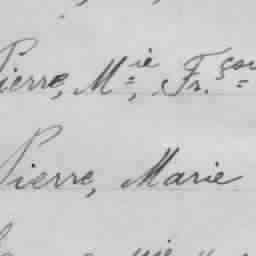 Pierre, M.ie, Fr.çoi
Pierre, Marie